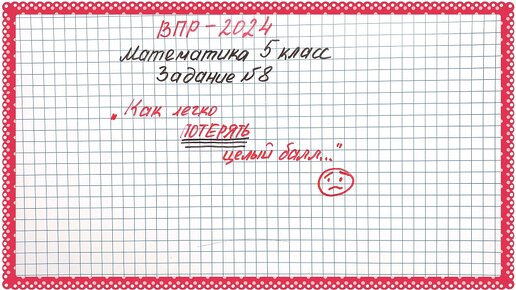 ВПР-2024
Математика 5 класс
Задание №8
„Как легко
ПОТЕРЯТЬ
целый балл..."